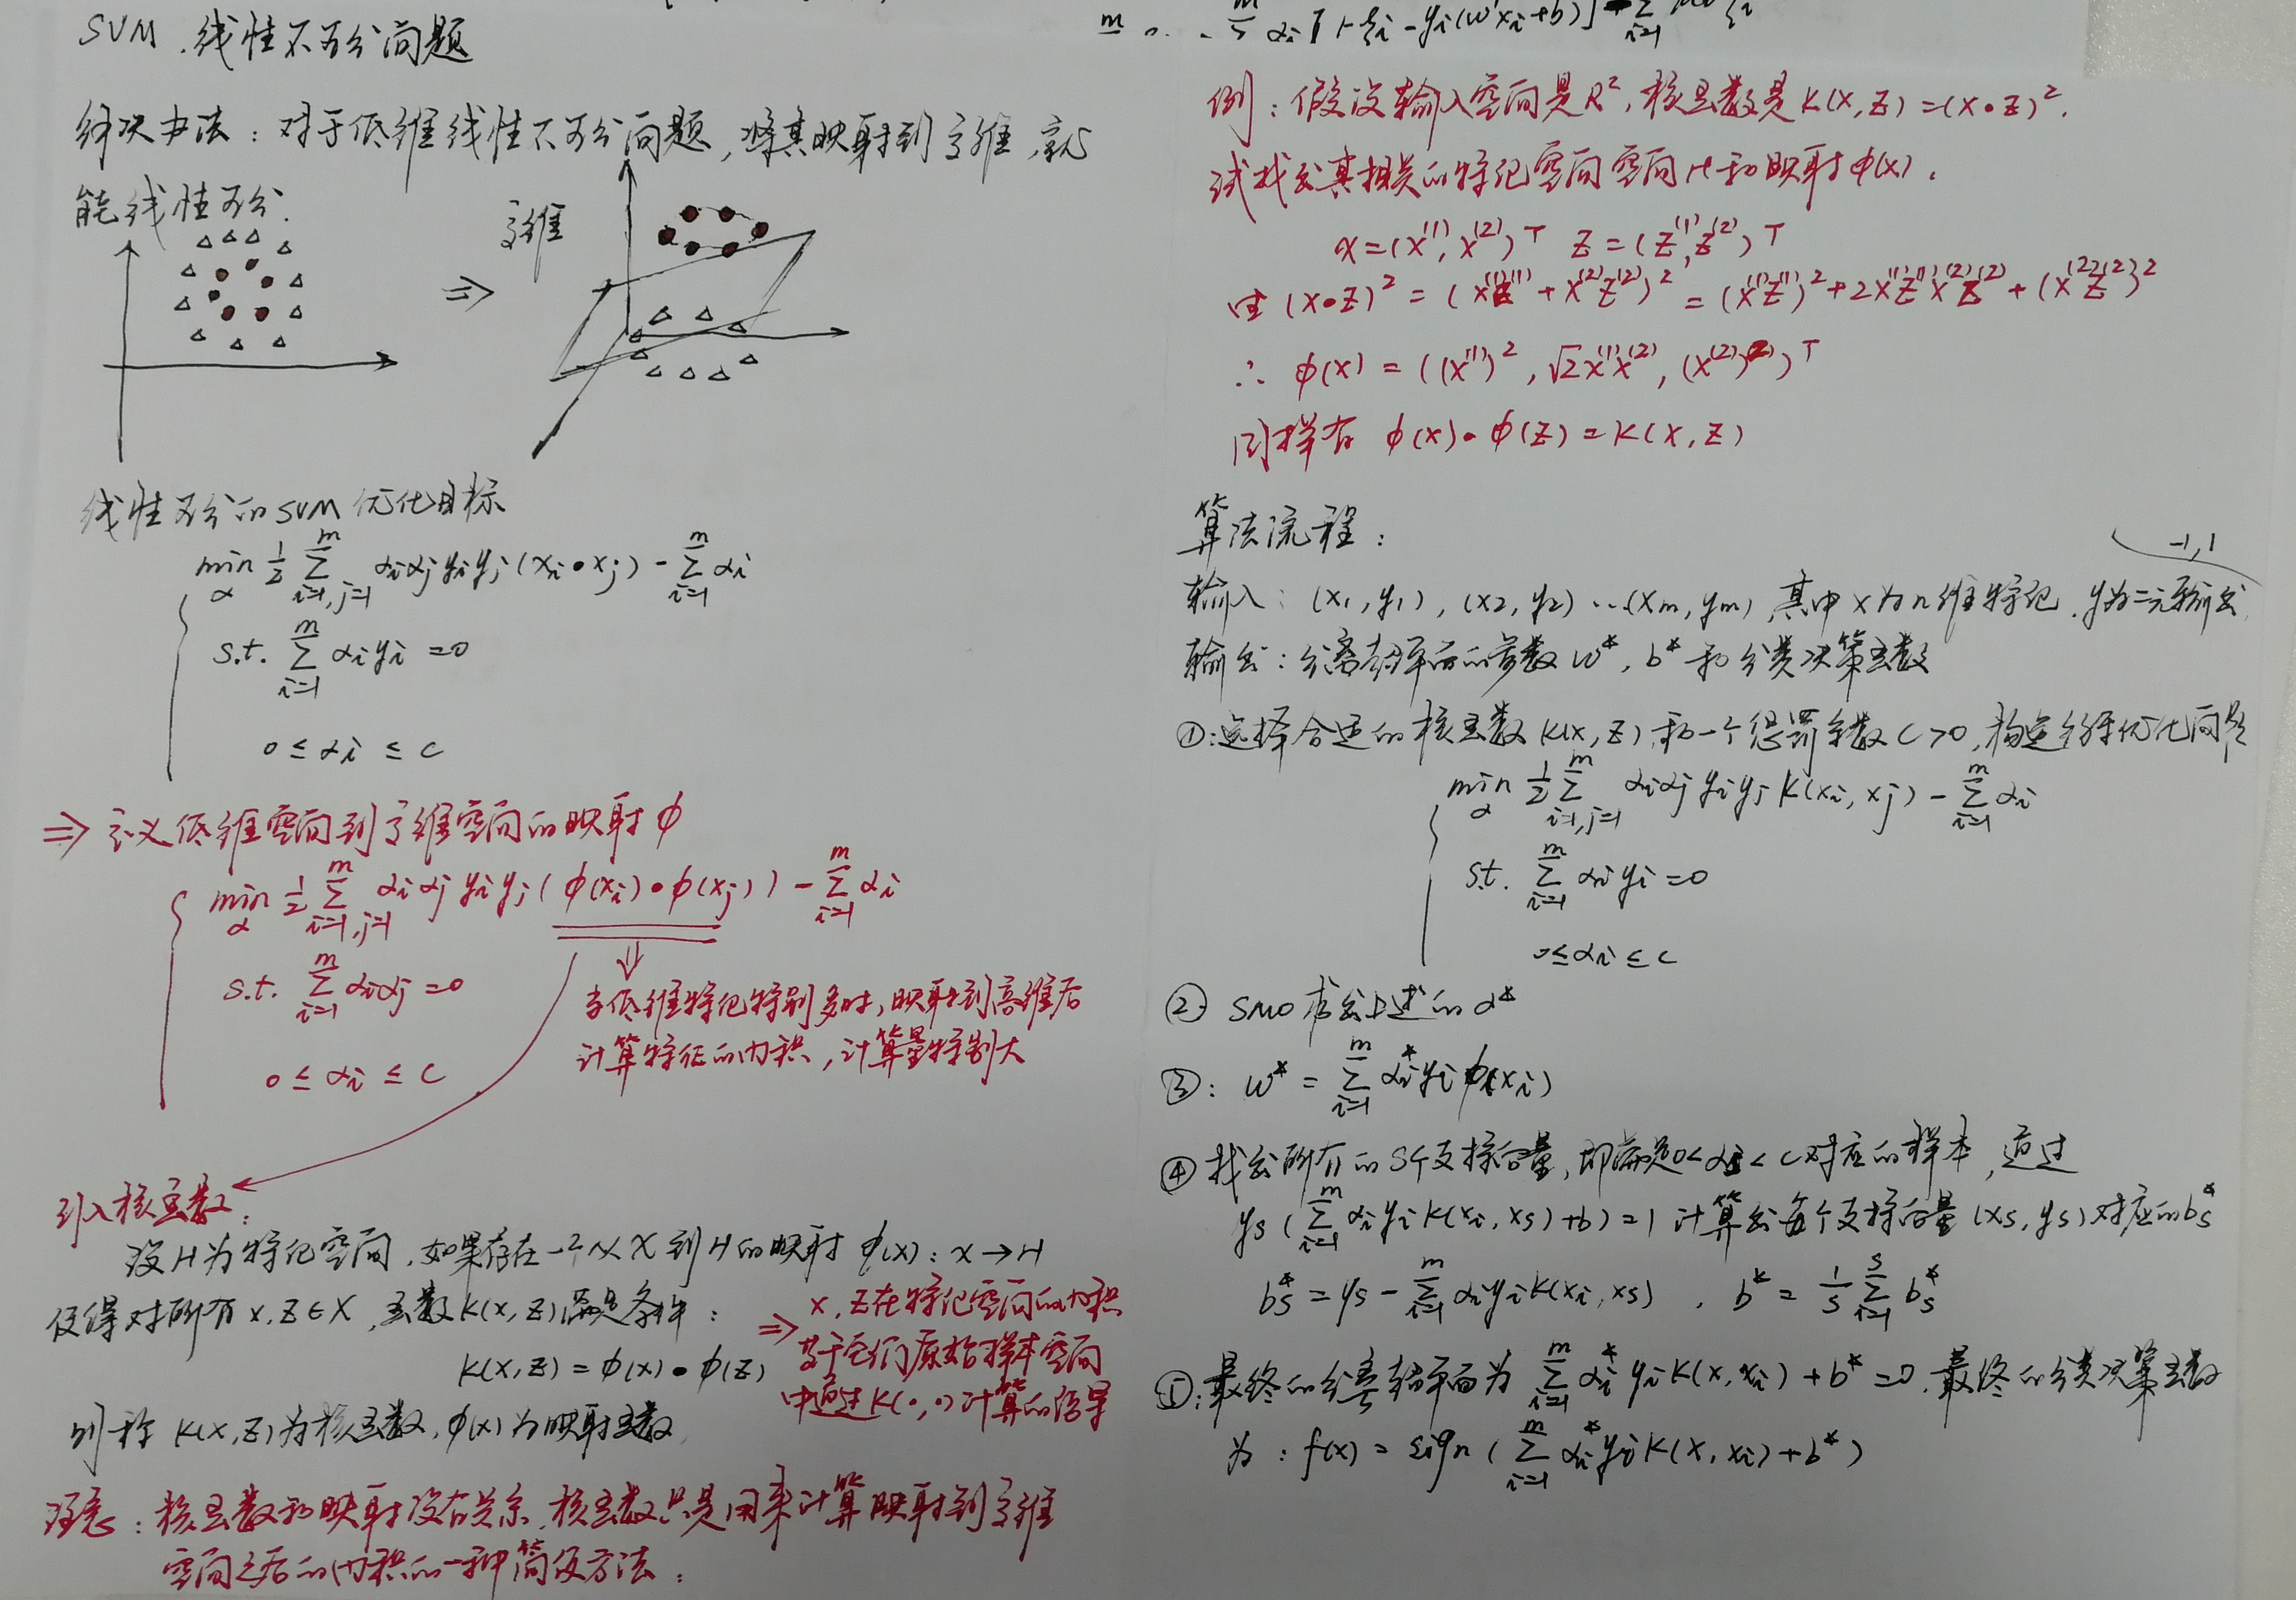 SVM. 线性不可分问题
解决办法：对于低维线性不可分问题，将其映射到高维，就
能线性可分.
高维
⇒
线性可分的SVM优化目标
min_α 1/2 Σ_{i=1,j=1}^m αiαjyiyj(xi•xj) - Σ_{i=1}^m αi
s.t. Σ_{i=1}^m αiyi = 0
0 ≤ αi ≤ C
⇒ 定义低维空间到高维空间的映射φ
min_α 1/2 Σ_{i=1,j=1}^m αiαjyiyj(φ(xi)•φ(xj)) - Σ_{i=1}^m αi
s.t. Σ_{i=1}^m αiαj = 0
0 ≤ αi ≤ C
当低维特征特别多时，映射到高维后
计算特征的内积，计算量特别大
引入核函数：
设H为特征空间，如果存在一个从X到H的映射 φ(x): X→H
使得对所有x,Z∈X，函数K(x,Z)满足条件：
K(x,Z) = φ(x)•φ(Z)
⇒ x,Z在特征空间的内积
等于它们原始样本空间
中通过K(•,•)计算的结果
则称 K(x,Z)为核函数，φ(x)为映射函数
注意：核函数和映射没有关系，核函数只是用来计算映射到高维
空间之后的内积的一种简便方法；
αi[1-ξi-yi(w^T xi+b)] + Σ_{i=1}
例：假设输入空间是R²，核函数是K(x,Z)=(x•Z)².
试找出其相关的特征空间空间H和映射φ(x).
x=(x^(1), x^(2))^T Z=(Z^(1), Z^(2))^T
由 (x•Z)² = (x^(1)Z^(1) + x^(2)Z^(2))² = (x^(1)Z^(1))² + 2x^(1)Z^(1)x^(2)Z^(2) + (x^(2)Z^(2))²
∴ φ(x) = ((x^(1))², √2x^(1)x^(2), (x^(2))²)^T
同样有 φ(x)•φ(Z) = K(x,Z)
算法流程：
-1,1
输入：(x1,y1), (x2,y2)…(xm,ym),其中x为n维特征. y为二元输出.
输出：分离超平面的参数w*, b*和分类决策函数
①:选择合适的核函数K(x,Z)和一个惩罚系数C>0,构造约束优化问题
min_α 1/2 Σ_{i=1,j=1}^m αiαjyiyjK(xi,xj) - Σ_{i=1}^m αi
s.t. Σ_{i=1}^m αiyi = 0
0≤αi≤C
② SMO求出上述的α*
③: w* = Σ_{i=1}^m αi*yiφ(xi)
④ 找出所有的S个支持向量,即满足0<αi<C对应的样本,通过
ys(Σ_{i=1}^m αiyiK(xi,xs)+b)=1 计算出每个支持向量(xs,ys)对应的bs*
bs* = ys - Σ_{i=1}^m αiyiK(xi,xs) , b* = 1/S Σ_{i=1}^S bs*
⑤:最终的分离超平面为 Σ_{i=1}^m αi*yiK(x,xi) + b* = 0,最终的分类决策函数
为：f(x) = sign(Σ_{i=1}^m αi*yiK(x,xi)+b*)